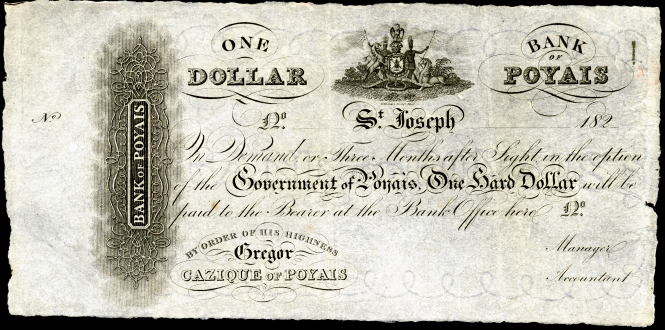 ONE DOLLAR
BANK OF POYAIS
No
No
St. Joseph
182
On Demand, or Three Months after Sight, in the option
of the Government of Poyais, One Hard Dollar will be
paid to the Bearer at the Bank Office here No
BANK OF POYAIS
BY ORDER OF HIS HIGHNESS
Gregor
CAZIQUE OF POYAIS
Manager
Accountant